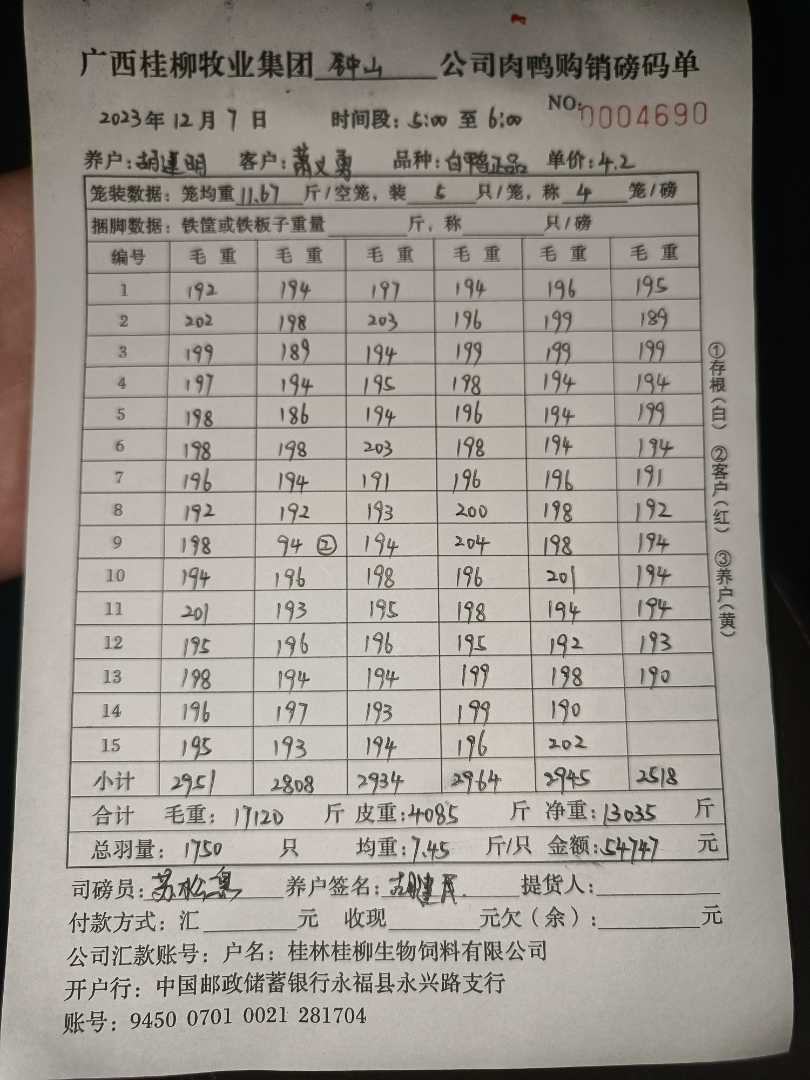 广西桂柳牧业集团 钟山 公司肉鸭购销磅码单
2023年12月7日 时间段：5:00 至 6:00 NO: 0004690
养户： 客户：萧义勇 品种：白鸭正品 单价：4.2
笼装数据：笼均重 11.67 斤/空笼，装 5 只/笼，称 4 笼/磅
捆脚数据：铁筐或铁板子重量 斤，称 只/磅
编号 毛重 毛重 毛重 毛重 毛重 毛重
1 192 194 197 194 196 195
2 202 198 203 196 199 189
3 199 189 194 199 199 199
4 197 194 195 198 194 194
5 198 186 194 196 194 199
6 198 198 203 198 194 194
7 196 194 191 196 196 191
8 192 192 193 200 198 192
9 198 94 ② 194 204 198 194
10 194 196 198 196 201 194
11 201 193 195 198 194 194
12 195 196 196 195 192 193
13 198 194 194 199 198 190
14 196 197 193 199 190
15 195 193 194 196 202
小计 2951 2808 2934 2964 2945 2518
合计 毛重：17120 斤 皮重：4085 斤 净重：13035 斤
总羽量：1750 只 均重：7.45 斤/只 金额：54747 元
司磅员： 养户签名： 提货人：
付款方式：汇 元 收现 元欠（余）： 元
公司汇款账号：户名：桂林桂柳生物饲料有限公司
开户行：中国邮政储蓄银行永福县永兴路支行
账号：9450 0701 0021 281704
①存根（白） ②客户（红） ③养户（黄）